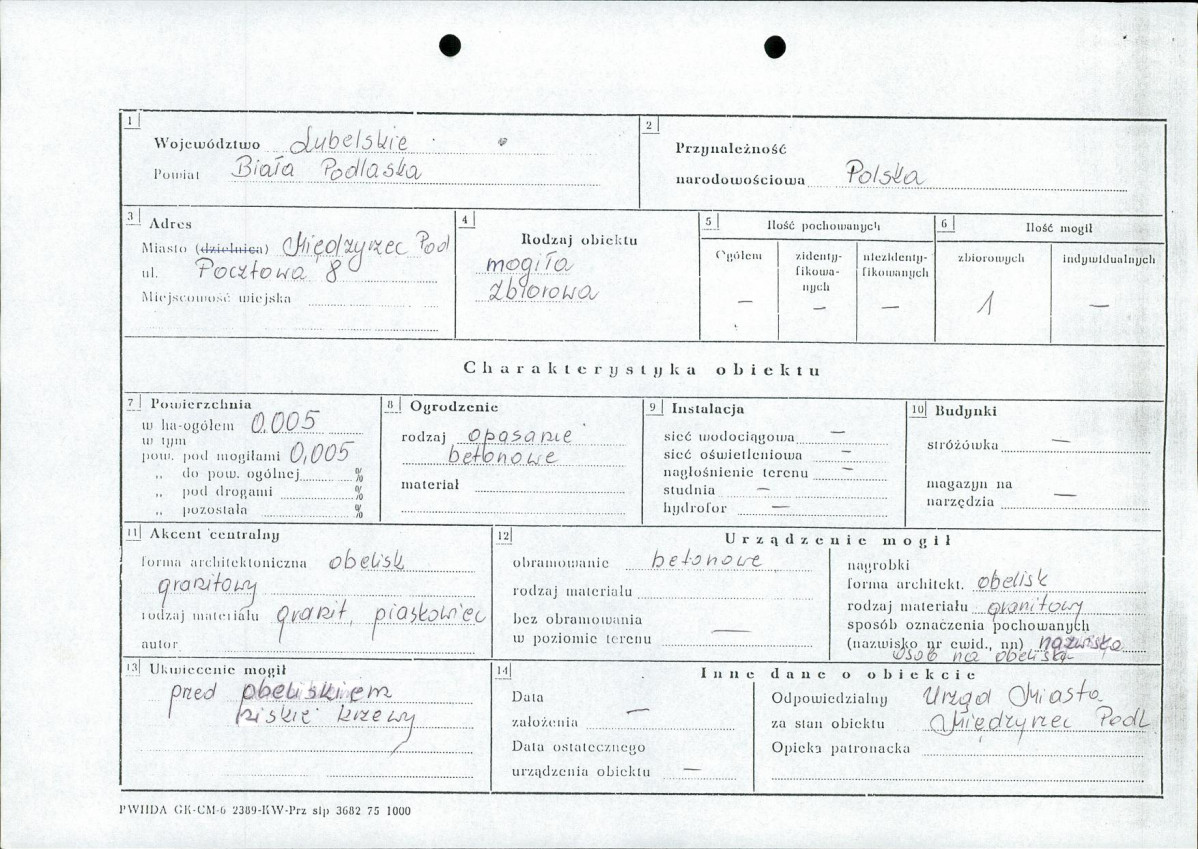 1
Województwo Lubelskie
Powiat Biała Podlaska
2
Przynależność
narodowościowa Polska
3 Adres
Miasto (dzielnica) Międzyrzec Pod
ul. Pocztowa 8
Miejscowość wiejska
4
Rodzaj obiektu
mogiła
zbiorowa
5 Ilość pochowanych
Ogółem
zidenty-
fikowa-
nych
niezidenty-
fikowanych
— — —
6 Ilość mogił
zbiorowych indywidualnych
1 —
Charakterystyka obiektu
7 Powierzchnia
w ha-ogółem 0.005
w tym
pow. pod mogiłami 0,005
„ do pow. ogólnej %
„ pod drogami %
„ pozostała %
8 Ogrodzenie
rodzaj opasanie
betonowe
materiał
9 Instalacja
sieć wodociągowa —
sieć oświetleniowa —
nagłośnienie terenu —
studnia —
hydrofor —
10 Budynki
stróżówka —
magazyn na
narzędzia —
11 Akcent centralny
forma architektoniczna obelisk
granitowy
rodzaj materiału granit, piaskowiec
autor
12 Urządzenie mogił
obramowanie betonowe
rodzaj materiału
bez obramowania
w poziomie terenu —
nagrobki
forma architekt. obelisk
rodzaj materiału granitowy
sposób oznaczenia pochowanych
(nazwisko nr ewid., nn) nazwiska
osób na obelisku
13 Ukwiecenie mogił
przed obeliskiem
niskie krzewy
14 Inne dane o obiekcie
Data
założenia —
Data ostatecznego
urządzenia obiektu —
Odpowiedzialny Urząd Miasta
za stan obiektu Międzyrzec Podl
Opieka patronacka
PWHDA GK-CM-6 2389-KW-Prz słp 3682 75 1000